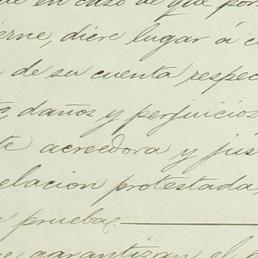 de en caso de que por
ierne, diere lugar á c
de su cuenta respec
daños y perjuicios
te acreedora y jus
elacion protestada,
prueba,
garantizan el p